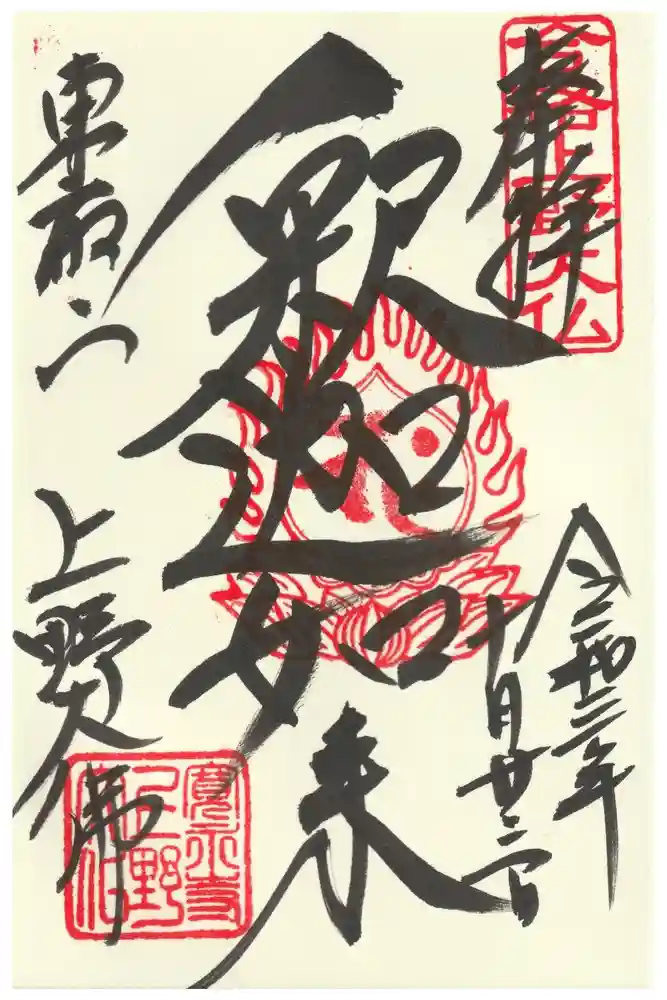 奉拝
合格上野大仏
令和三年
十月廿二日
釈迦如来
東叡山
上野大佛
寛永寺
上野
大仏